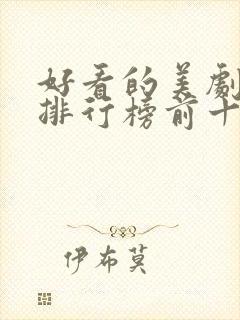 好看的美劇
排行榜前十
伊布莫